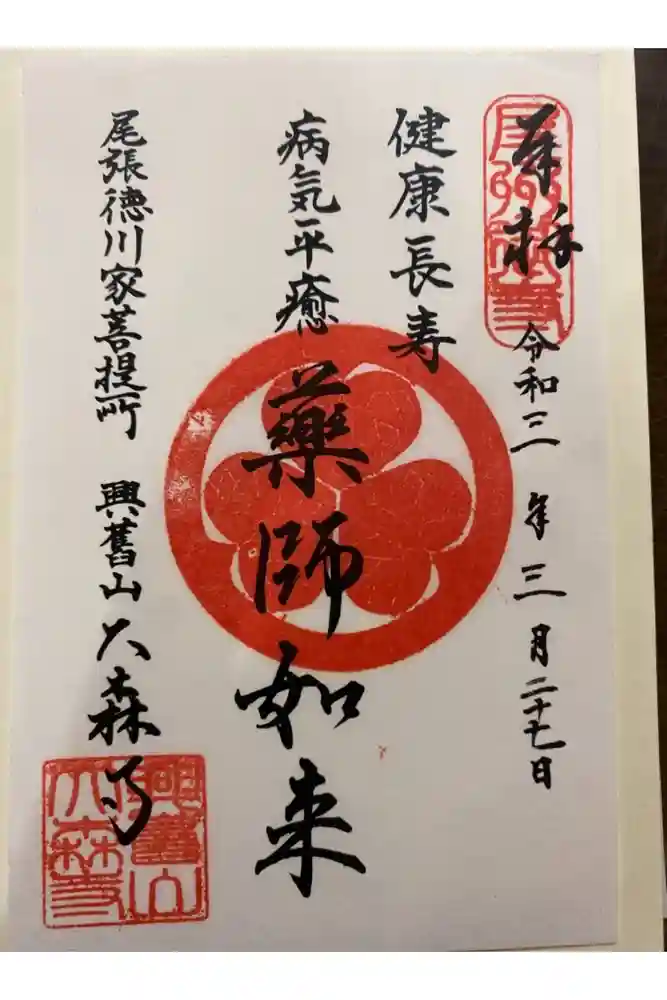 奉拝 令和三年三月二十七日
健康長寿
病気平癒
薬師如来
尾張徳川家菩提所 興舊山大森寺
興舊山
大森寺